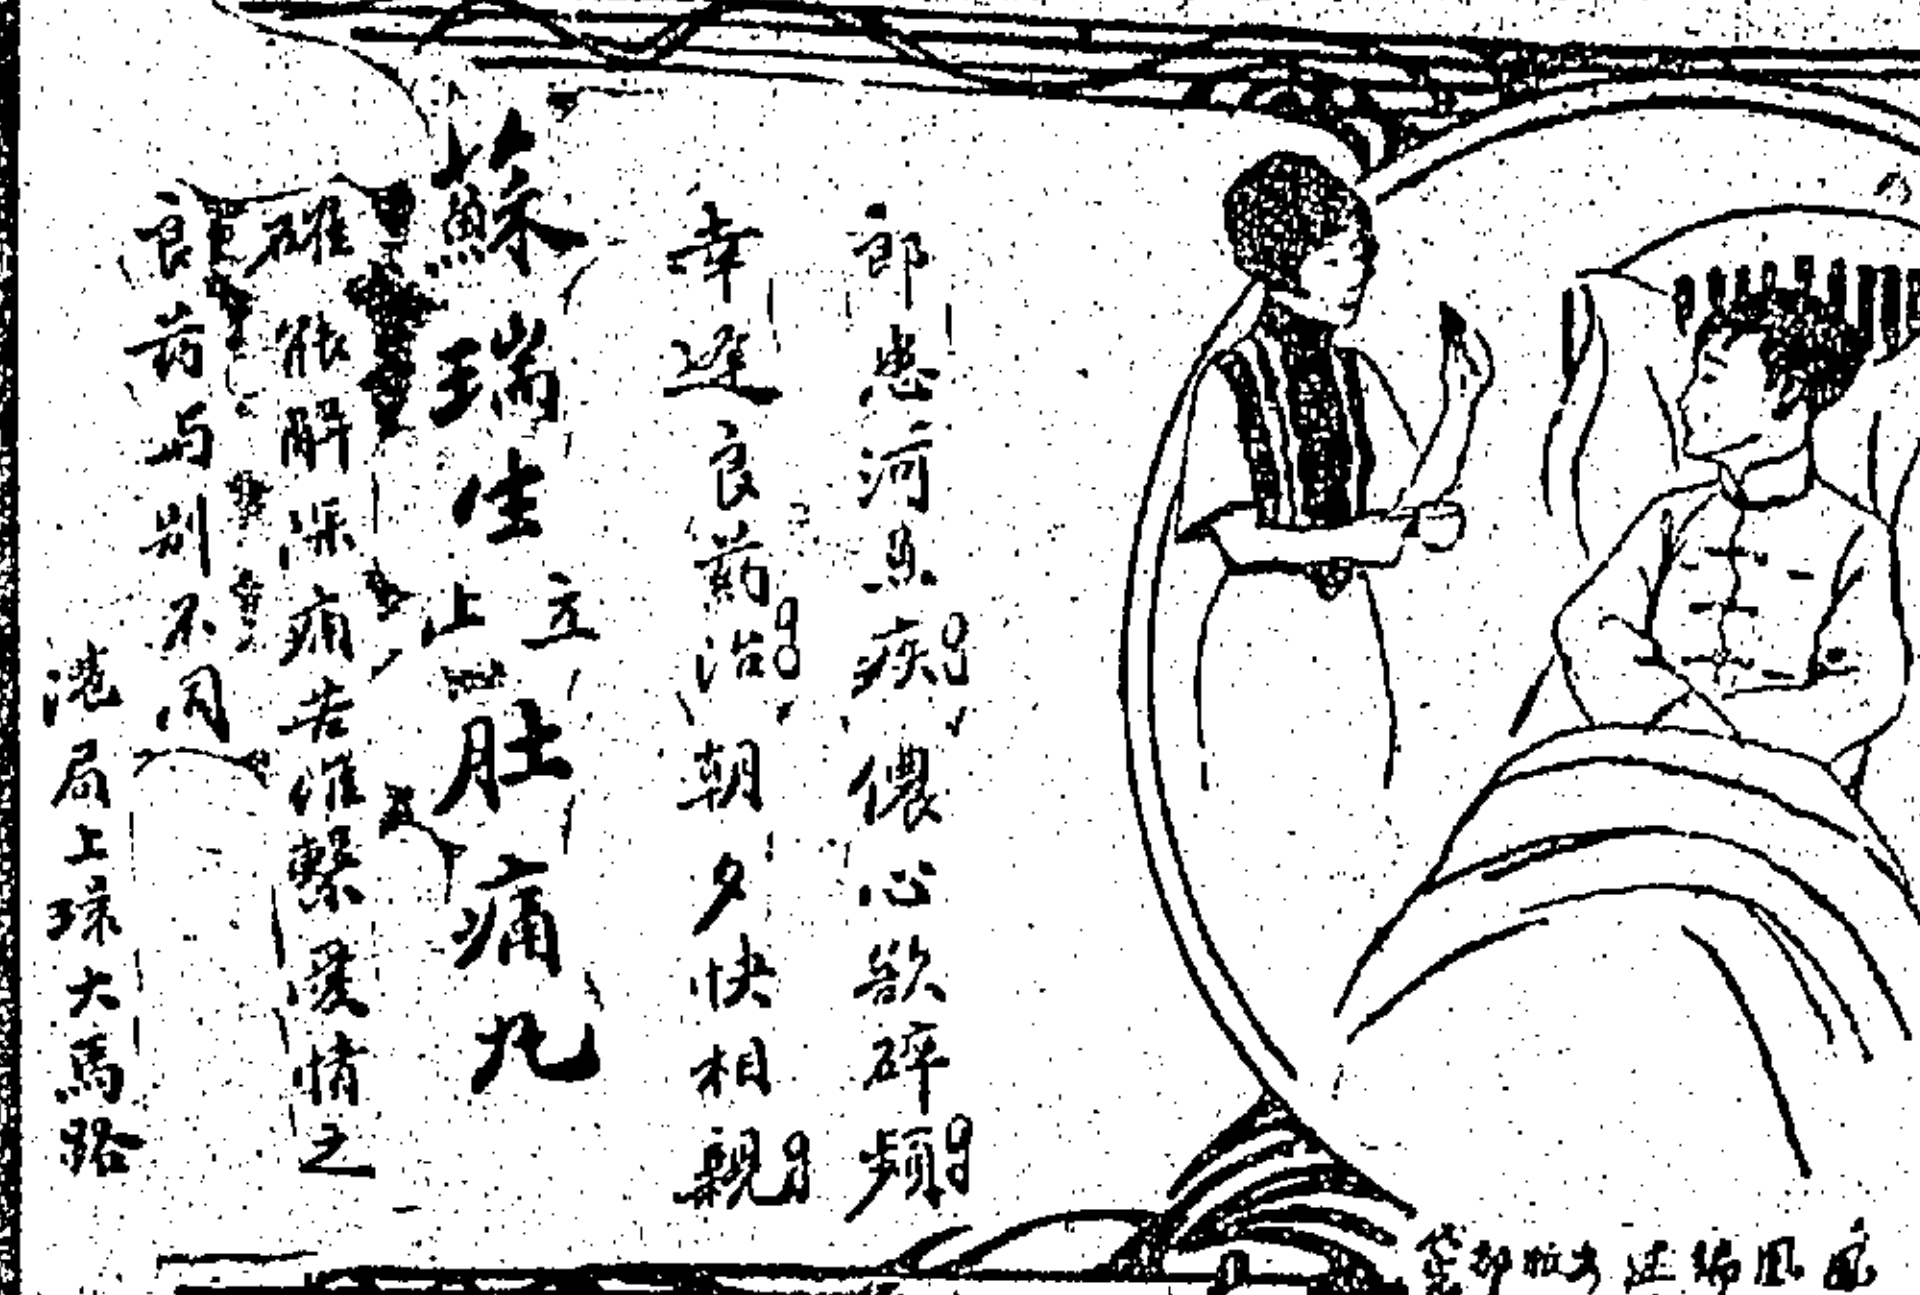 郎患河魚疾儂心欲碎頻
幸延良药治朝夕快相親
蘇瑞生立止肚痛丸
確能解深痛苦维繫愛情之
良药与别不同
港局上環大馬路